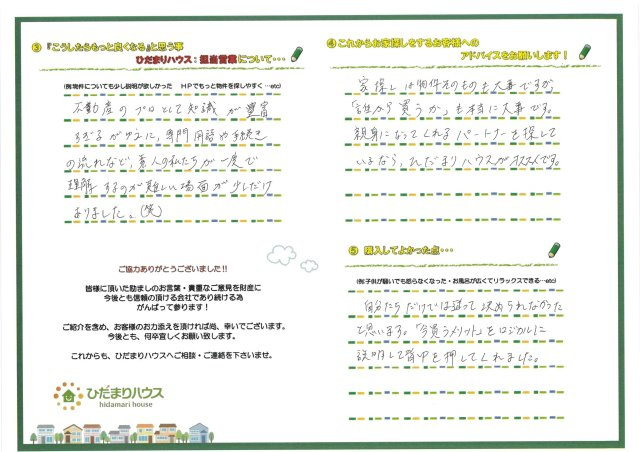 ③『こうしたらもっと良くなる』と思う事
ひだまりハウス：担当営業について・・・
(例:物件についても少し説明が欲しかった　HPでもっと物件を探しやすく …etc)
不動産のプロとして知識が豊富
すぎるがゆえに、専門用語や手続き
の流れなど、素人の私たちが一度で
理解するのが難しい場面が少しだけ
ありました。(笑)
ご協力ありがとうございました!!
皆様に頂いた励ましのお言葉・貴重なご意見を財産に
今後とも信頼の頂ける会社であり続ける為
がんばって参ります！
ご紹介を含め、お客様のお力添えを頂ければ尚、幸いでございます。
今後とも、何卒宜しくお願い致します。
これからも、ひだまりハウスへご相談・ご連絡を下さいませ。
ひだまりハウス
hidamari house
④これからお家探しをするお客様への
アドバイスをお願いします！
家探しは物件そのものも大事ですが、
「誰から買うか」も本当に大事です。
親身になってくれるパートナーを探して
いるなら、ひだまりハウスがオススメです。
⑤ 購入してよかった点・・・
(例:子供が騒いでも怒らなくなった・お風呂が広くてリラックスできる…etc)
自分たちだけでは迷って決められなかった
と思います。「今買うメリット」をロジカルに
説明して背中を押してくれました。